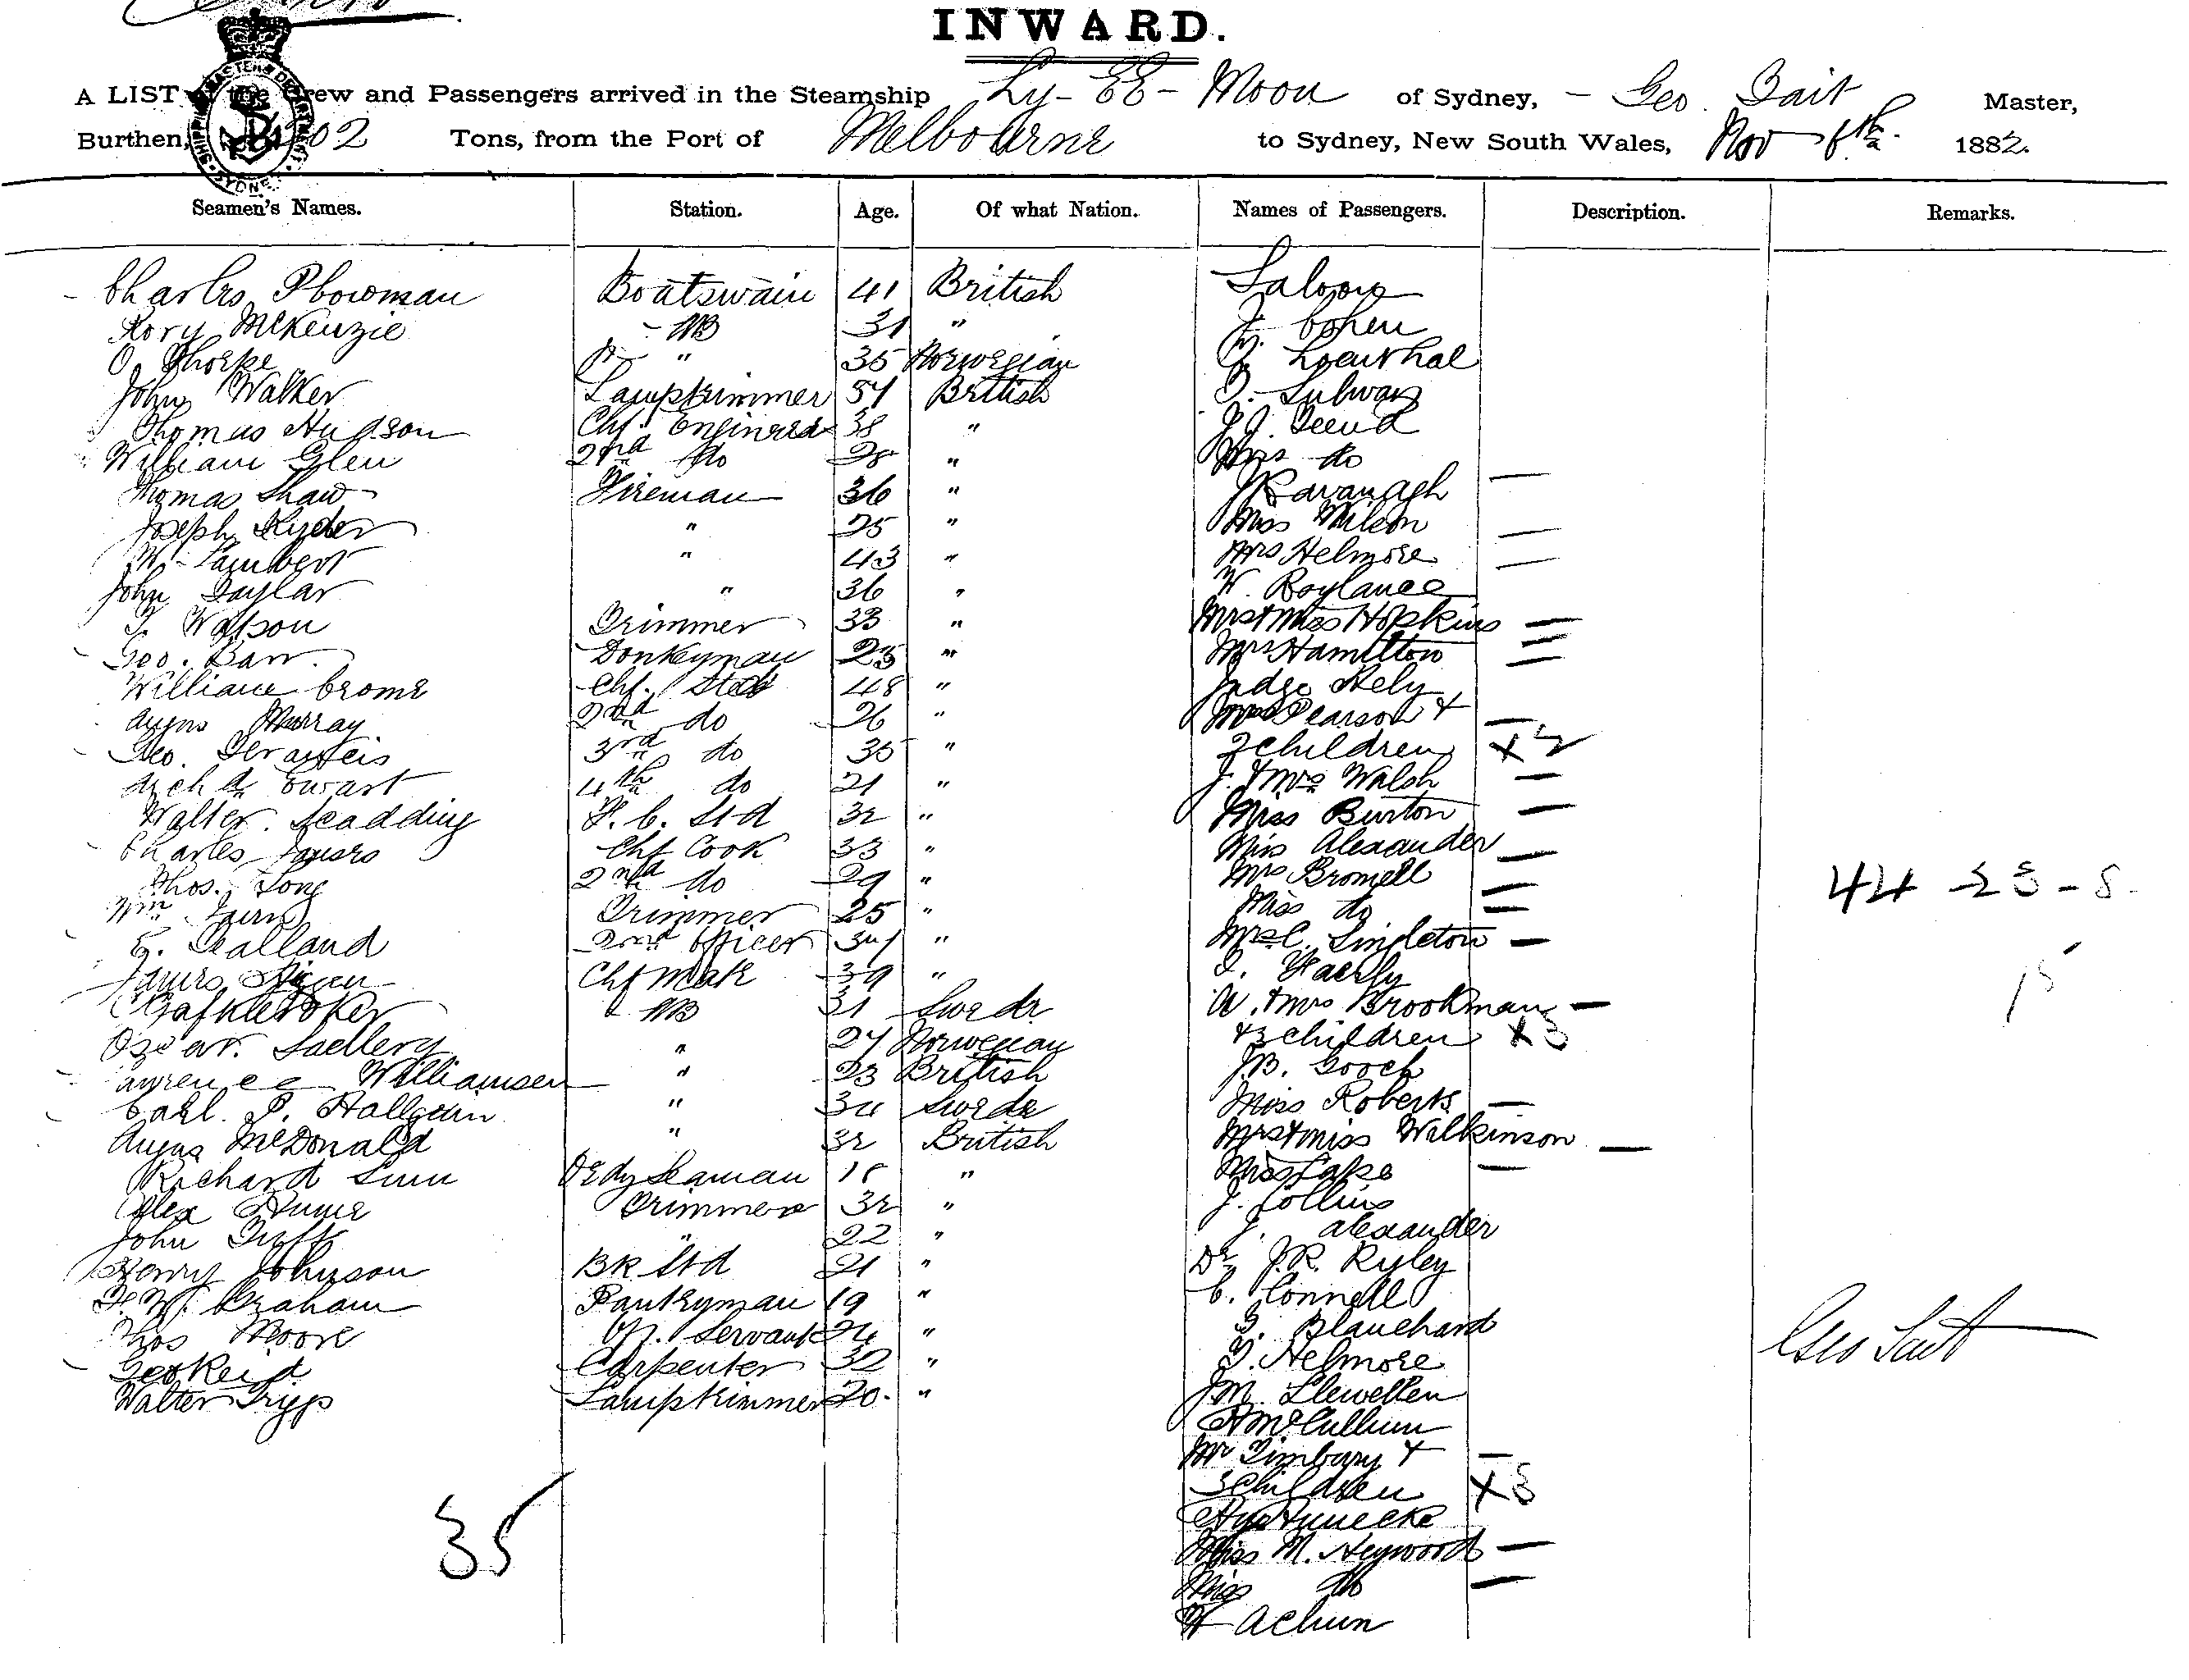 INWARD.
A LIST of the Crew and Passengers arrived in the Steamship Ly-EE-Moon of Sydney, - Geo. Tait Master,
Burthen, 02 Tons, from the Port of Melbourne to Sydney, New South Wales, Nov 1882.
Seamen's Names. Station. Age. Of what Nation. Names of Passengers. Description. Remarks.
Charles Plowman Boatswain 41 British Saloon
Rory McKenzie AB 31 " Cohen
O. Thorpe " 35 Norwegian Loenthal
John Walker Lamptrimmer 51 British
Thomas Hudson Chf. Engineer 38 " J.J. Teend
William Glen 2nd do 28 " Mrs do
Thomas Shaw Fireman 36 " J Kavanagh —
Joseph " 25 " Miss Wilson —
W. Lambert " 43 " Mrs Helmore —
John Taylar " 36 " W. Roylance
T. Watson Trimmer 33 " Mrs & Miss Hopkins —
Geo. Barr. Donkeyman 23 " Mrs Hamilton —
William Crome Chf. Std 48 " Judge Hely
Angus Murray 2nd do 26 " Mrs Pearson & —
Geo. 3rd do 30 " 2 children X 2
Archd. Ewart 4th do 21 " J. & Mrs Walsh —
Walter Scadding F. C. Std 32 " Miss Burton —
Charles Chf Cook 33 " Miss Alexander —
Thos. Long 2nd do 29 " Mrs Bromell — 44 - 23 - 8
Wm. Trimmer 25 " Miss do —
E. Sealland 2nd Officer 34 " Mrs C. Singleton —
James Chf Mate 39 "
AB 31 Swede A. & Mrs Brookman —
Oscar " 24 Norwegian & 3 children X 3
Lawrence Williamsen " 23 British J.B. Gooch
Carl. P. Hallgrin " 34 Swede Miss Roberts —
Angus McDonald " 32 British Mrs & Miss Wilkinson —
Richard Ordy Seaman 18 " Miss —
Alex Hume Trimmer 32 " J. Collins
John " 22 " J. Alexander
Henry Johnson BK Std 21 " Dr. J.R. Ryley
F. W. Graham Pantryman 19 " C. Connell
Thos Moore Off. Servant 24 " G. Blanchard
Geo Reid Carpenter 32 " T. Helmore Geo Tait
Walter Tryp Lamptrimmer 20. " J M. Llewellen
H McCullum
Mr Timbury & —
3 children X 3
35
Miss M. Heywood —
Miss do —
H Achun